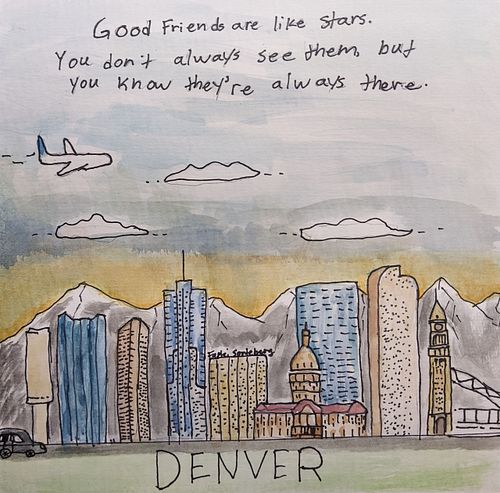 Good Friends are like stars.
You don't always see them, but
you know they're always there.
DENVER